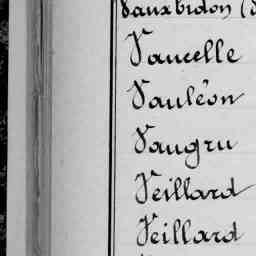 Vauxbidon (
Vaucelle
Vauléon
Vaugru
Veillard
Veillard